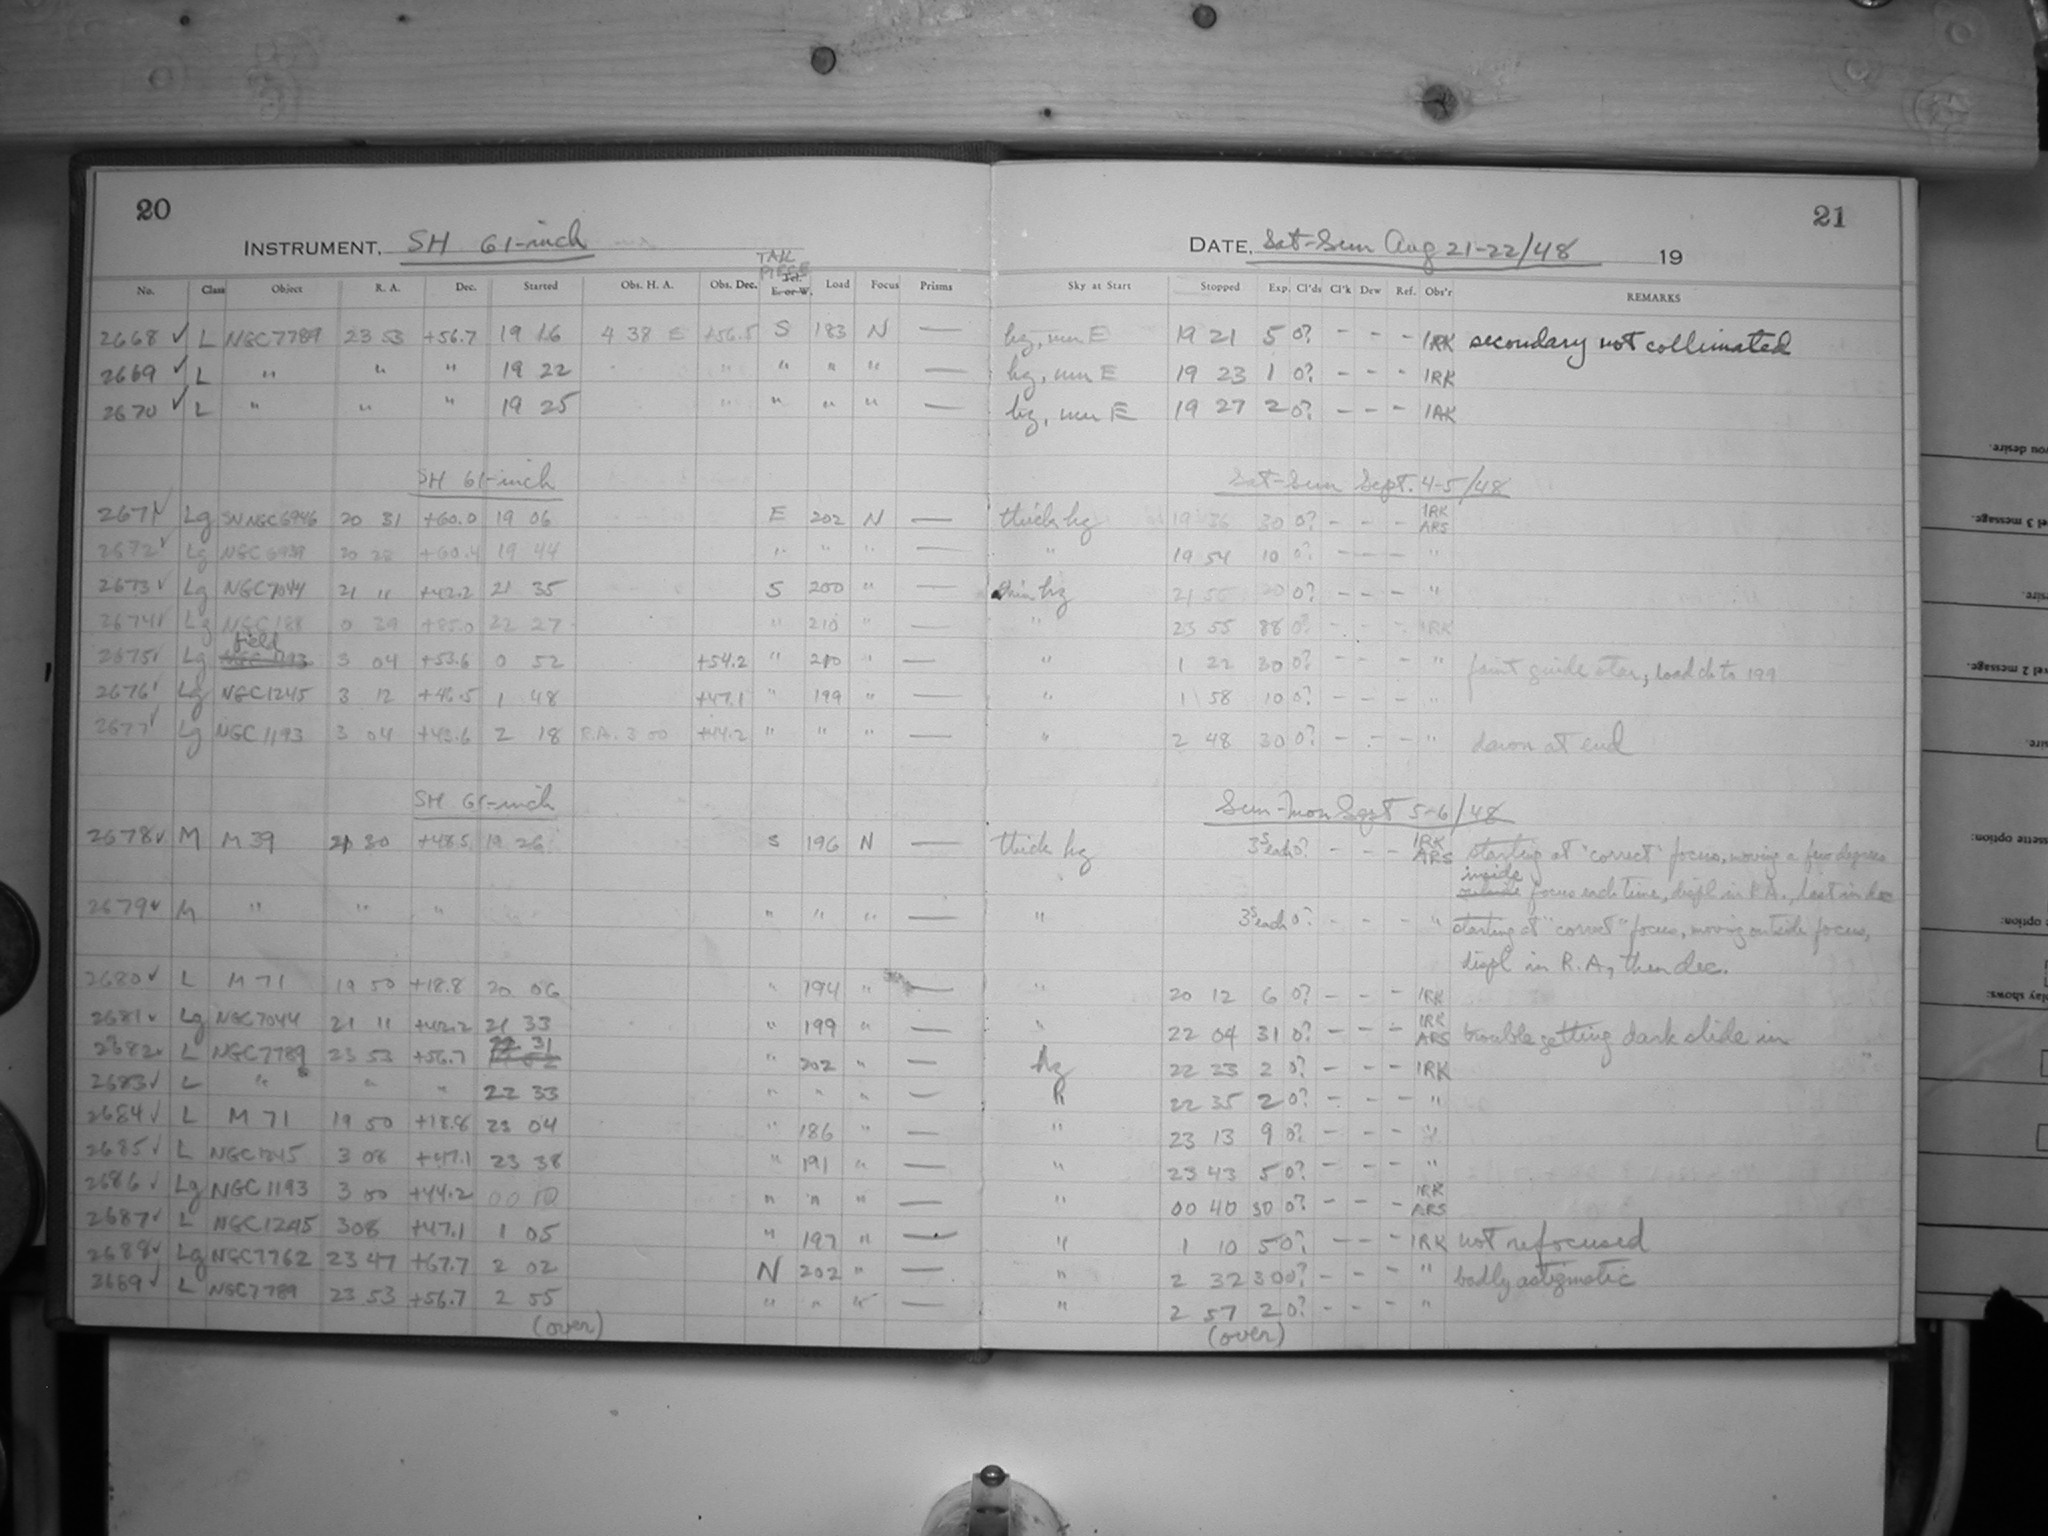 20
INSTRUMENT, SH 61-inch
DATE, Sat-Sun Aug 21-22/48 19
21
TAIL PIECE
No. Class Object R. A. Dec. Started Obs. H. A. Obs. Dec. Tel. E. or W. Load Focus Prisms Sky at Start Stopped Exp. Cl'ds Cl'k Dew Ref. Obs'r REMARKS
2668 ✓ L NGC7789 23 53 +56.7 19 16 4 38 E +56.5 S 183 N — hz, mn E 19 21 5 0? - - - IRK secondary not collimated
2669 ✓ L " " " 19 22 " " " " — hz, mn E 19 23 1 0? - - - IRK
2670 ✓ L " " " 19 25 " " " " — hz, mn E 19 27 2 0? - - - IRK
SH 61-inch Sat-Sun Sept. 4-5/48
2671 ✓ Lg SN NGC6946 20 31 +60.0 19 06 E 202 N — thick hz 19 36 30 0? - - - IRK ARS
2672 ✓ Lg NGC 6939 20 +60.4 19 44 " " " — " 19 54 10 0? - - - "
2673 ✓ Lg NGC7044 21 11 +42.2 21 35 S 200 " — thin hz 21 55 20 0? - - - "
2674 ✓ Lg NGC 188 0 39 +85.0 22 27 " 210 " — " 23 55 88 0? - - - IRK
2675 ✓ Lg field NGC 1193 3 04 +53.6 0 52 +54.2 " 210 " — " 1 22 30 0? - - - " faint guide star, load ch to 199
2676 ✓ Lg NGC1245 3 12 +46.5 1 48 +47.1 " 199 " — " 1 58 10 0? - - - "
2677 ✓ Lg NGC 1193 3 04 +43.6 2 18 R.A. 3 00 +44.2 " " " — " 2 48 30 0? - - - " dawn at end
SH 61-inch Sun-Mon Sept 5-6/48
2678 ✓ M M 39 21 30 +48.5 19 26 S 196 N — thick hz 3s each 0? - - - IRK ARS starting at "correct" focus, moving a few degrees
inside focus each time, displ in R.A., last in dec
2679 ✓ M " " " " " " — " 3s each 0? - - - " starting at "correct" focus, moving outside focus,
displ in R.A, then dec.
2680 ✓ L M 71 19 50 +18.8 20 06 " 194 " — " 20 12 6 0? - - - IRK
2681 ✓ Lg NGC7044 21 11 +42.2 21 33 " 199 " — " 22 04 31 0? - - - IRK ARS trouble getting dark slide in
2682 ✓ L NGC7789 23 53 +56.7 22 31 " 202 " — hz 22 33 2 0? - - - IRK
2683 ✓ L " " " 22 33 " " " — " 22 35 2 0? - - - "
2684 ✓ L M 71 19 50 +18.8 23 04 " 186 " — " 23 13 9 0? - - - "
2685 ✓ L NGC1245 3 08 +47.1 23 38 " 191 " — " 23 43 5 0? - - - "
2686 ✓ Lg NGC1193 3 00 +44.2 00 10 " " " — " 00 40 30 0? - - - IRK ARS
2687 ✓ L NGC1245 3 08 +47.1 1 05 " 197 " — " 1 10 5 0? - - - IRK not refocused
2688 ✓ Lg NGC7762 23 47 +67.7 2 02 N 202 " — " 2 32 30 0? - - - " badly astigmatic
2689 ✓ L NGC7789 23 53 +56.7 2 55 " " " — " 2 57 2 0? - - - "
(over) (over)